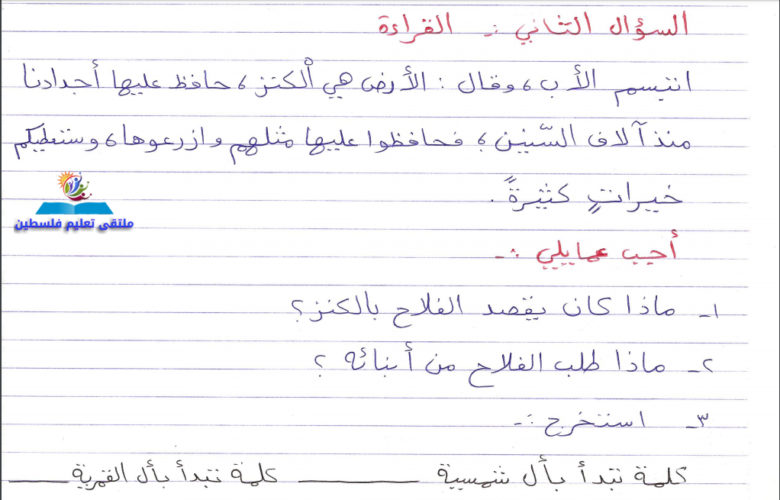 السؤال الثاني :- القراءة
ابتسم الأب ، وقال : الأرض هي الكنز ، حافظ عليها أجدادنا
منذ آلاف السّنين ، فحافظوا عليها مثلهم وازرعوها ، وستعطيكم
خيراتٍ كثيرةً .
ملتقى تعليم فلسطين
أجب عمايلي :-
١- ماذا كان يقصد الفلاح بالكنز ؟
٢- ماذا طلب الفلاح من أبنائه ؟
٣- استخرج :-
كلمة تبدأ بأل شمسية ________ كلمة تبدأ بأل القمرية ________